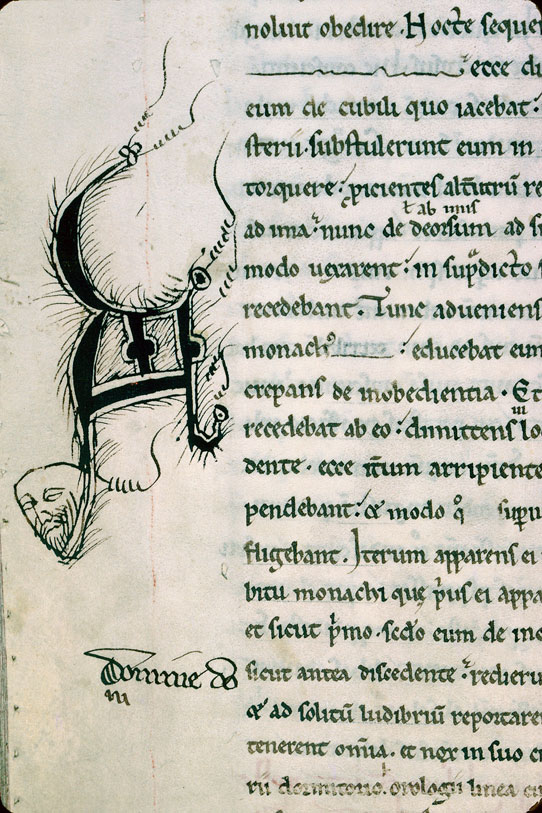 noluit obedire. Hoctē sequen
ecce du
eum de cubili quo iacebat:
sterii. substulerunt eum in
torquere: ꝓicientes altūtrū re
ł ab imis
ad ima: nunc de deorsum ad s
modo uexarent: in sup̄dicto
recedebant. Tunc adueniens
monachꝰ : educebat eum
crepans de inobedientia. Et
recedebat ab eo: dimittens lo
dente. ecce itūm arripiente
pendebant: & modo
fligebant. Iterum apparens ei
bitu monachi que p̄us ei appa
et sicut p̄mo. sc̄do eum de ino
sicut antea discedente: redieru
& ad solitū ludibriū reportare
tenerent omnia. et nox in suo
rii dormitorio. orologii linea